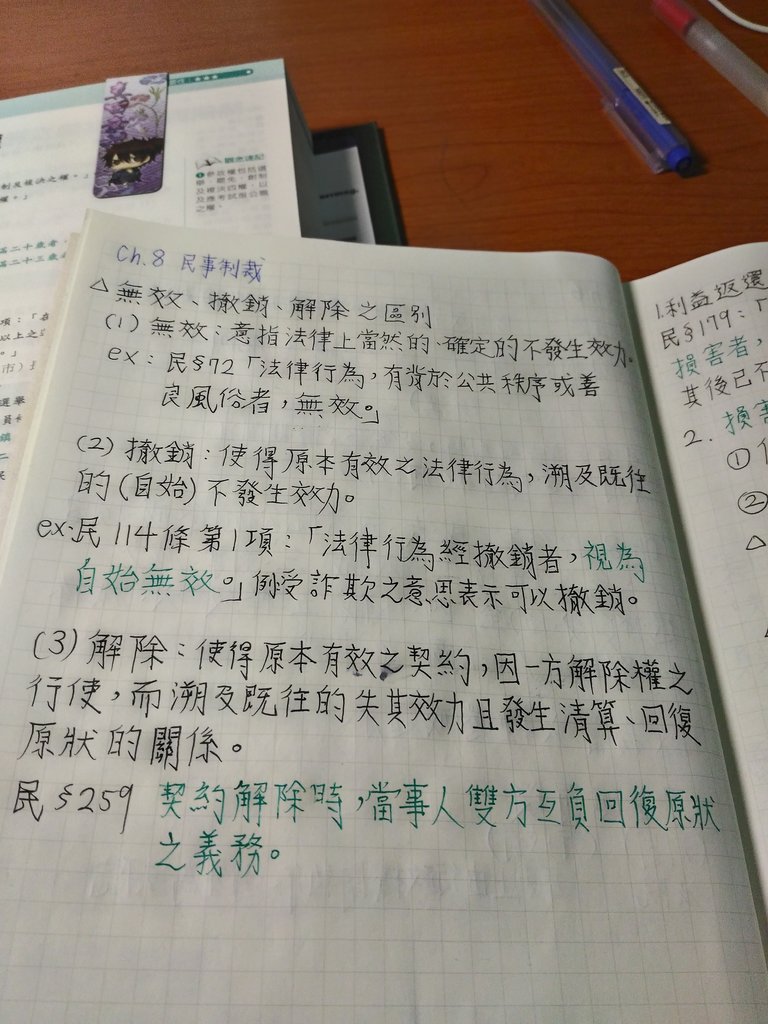 Ch.8 民事制裁
△無效、撤銷、解除之區別
(1) 無效：意指法律上當然的、確定的不發生效力。
ex：民§72「法律行為，有背於公共秩序或善
良風俗者，無效。」
(2) 撤銷：使得原本有效之法律行為，溯及既往
的(自始)不發生效力。
ex：民114條第1項：「法律行為經撤銷者，視為
自始無效。」例受詐欺之意思表示可以撤銷。
(3) 解除：使得原本有效之契約，因一方解除權之
行使，而溯及既往的失其效力且發生清算、回復
原狀的關係。
民§259 契約解除時，當事人雙方互負回復原狀
之義務。
1.利益返還
民§179：「
損害者，
其後已不
2. 損害
①
②
△
制及複決之權。」
權。」
滿二十歲者，
滿二十三歲
觀念速記
❶參政權包括選
舉、罷免、創制
及複決四權，以
及應考試服公職
之權。
項：「
以上之
。」
市)
選舉